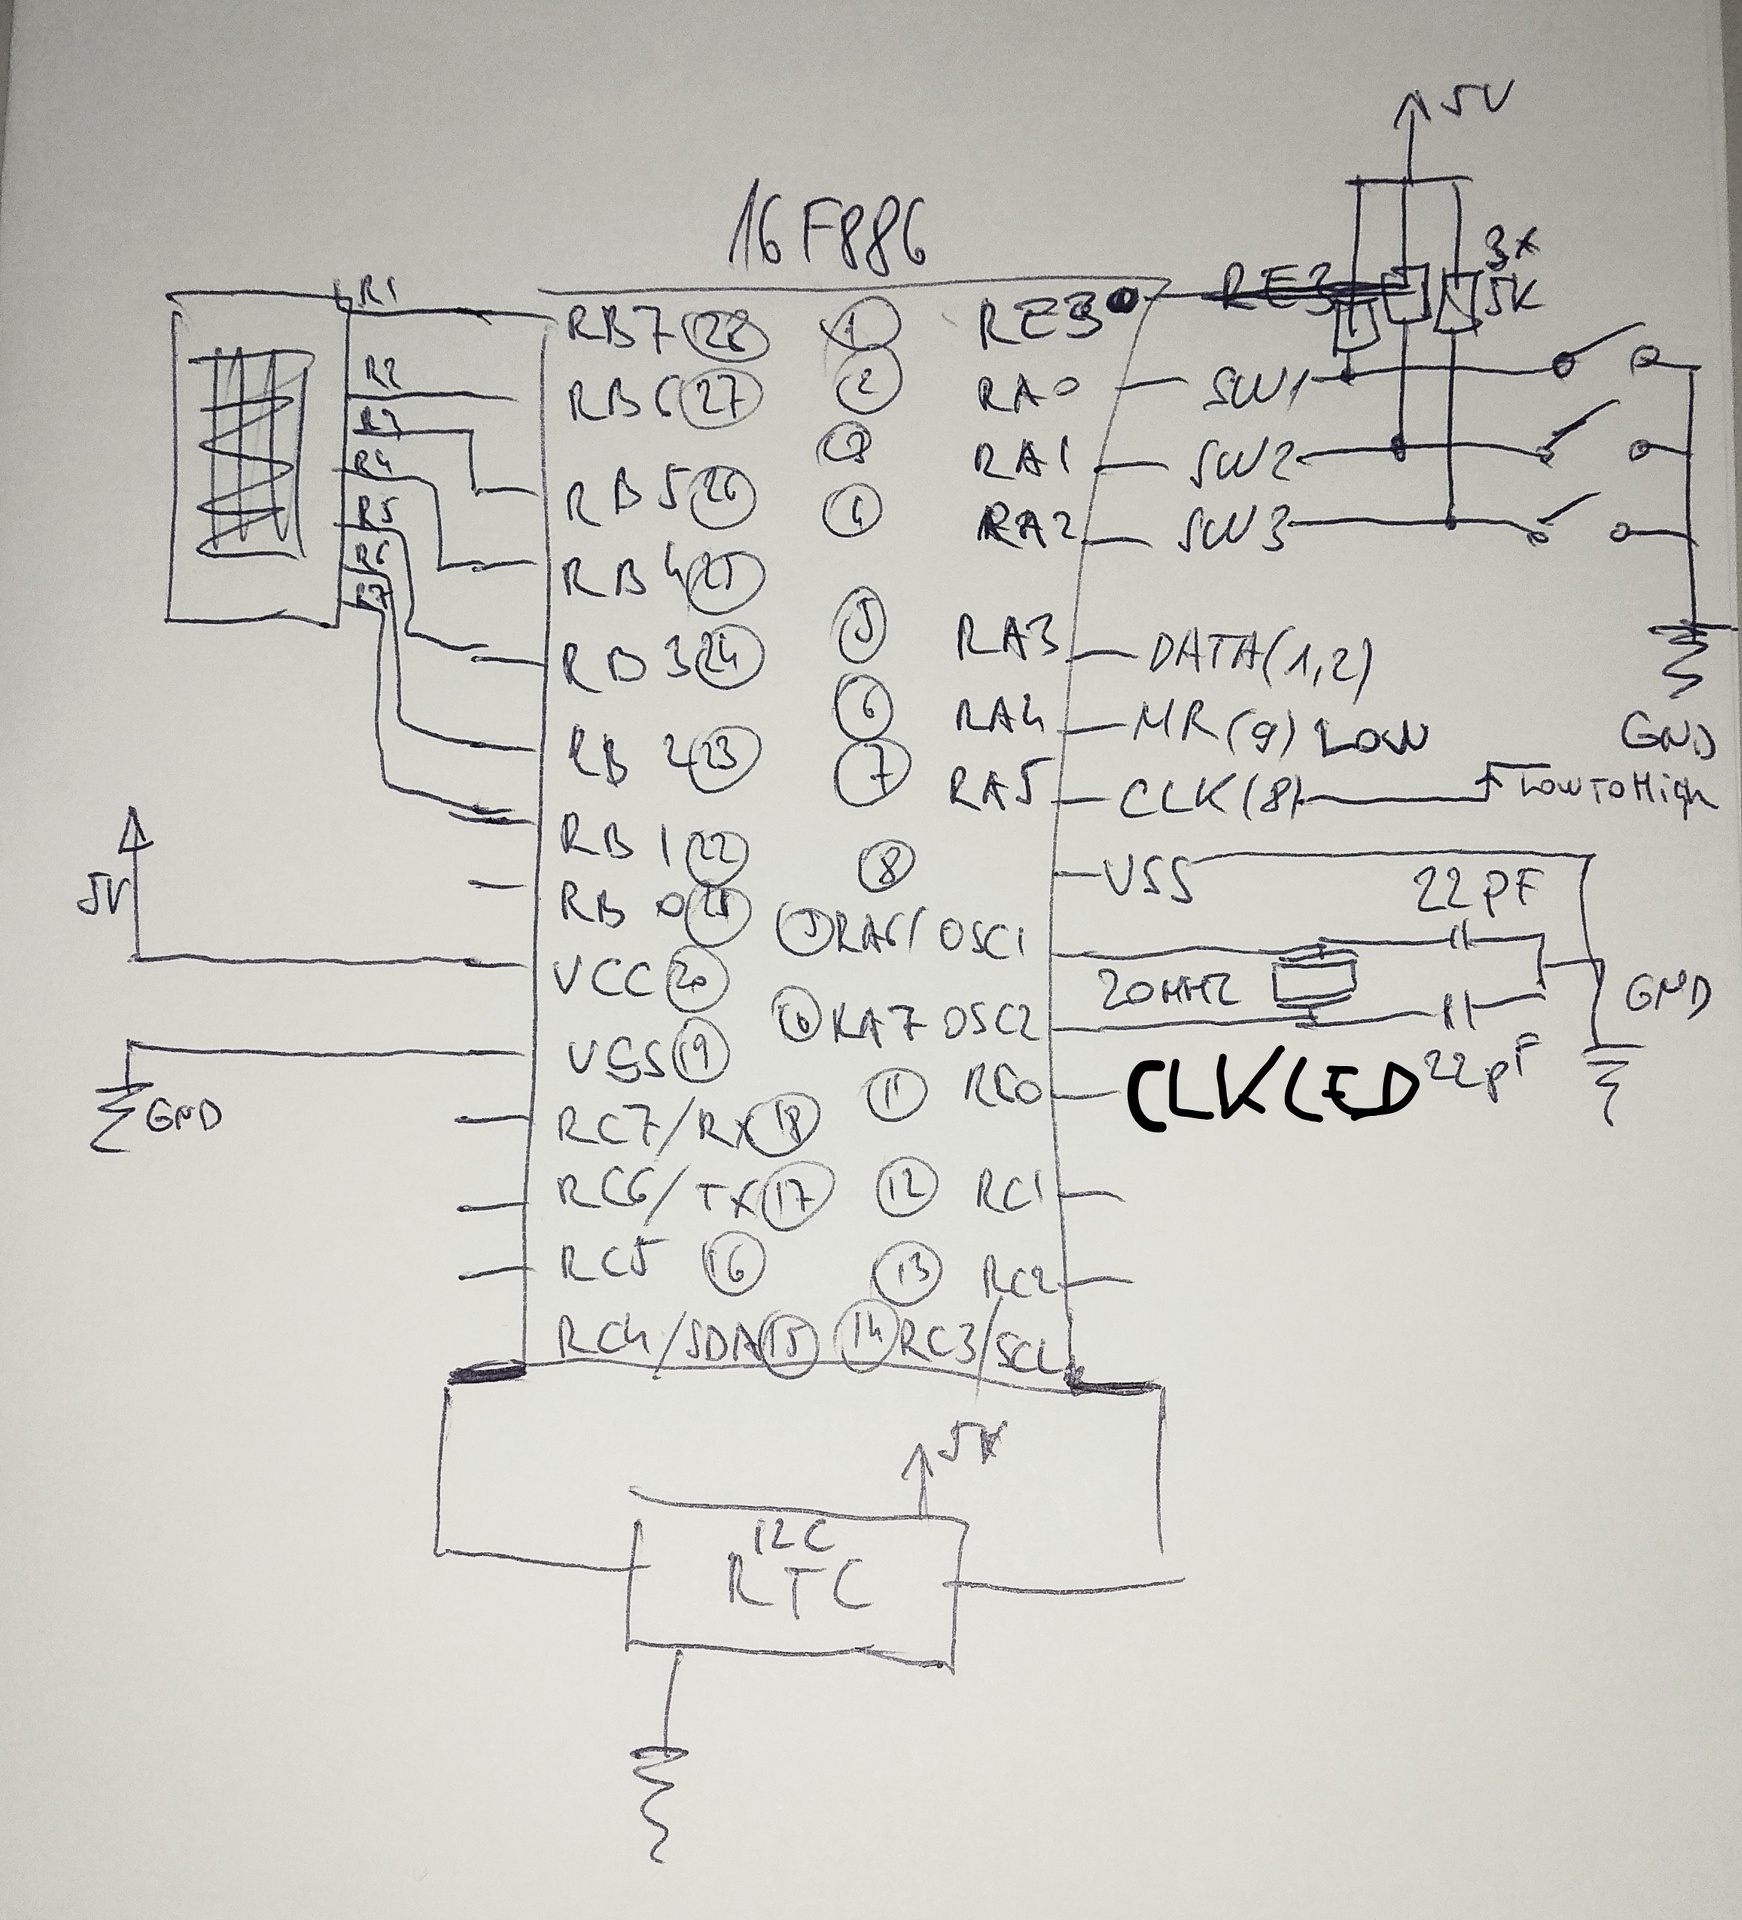 5V
16F886
3x
5K
R1
R2
R3
R4
R5
R6
R7
RB7 28
RB6 27
RB5 26
RB4 25
RB3 24
RB2 23
RB1 22
RB0 21
VCC 20
VSS 19
RC7/RX 18
RC6/TX 17
RC5 16
RC4/SDA 15
1 RE3 RE3
2 RA0 SW1
3 RA1 SW2
4 RA2 SW3
5 RA3 DATA(1,2)
6 RA4 MR(9) LOW
7 RA5 CLK(8) LowToHigh
8 VSS
9 RA6/OSC1
10 RA7 OSC2
11 RC0 CLKLED
12 RC1
13 RC2
14 RC3/SCL
GND
22pF
20MHZ
GND
22pF
5V
GND
5V
I2C
RTC